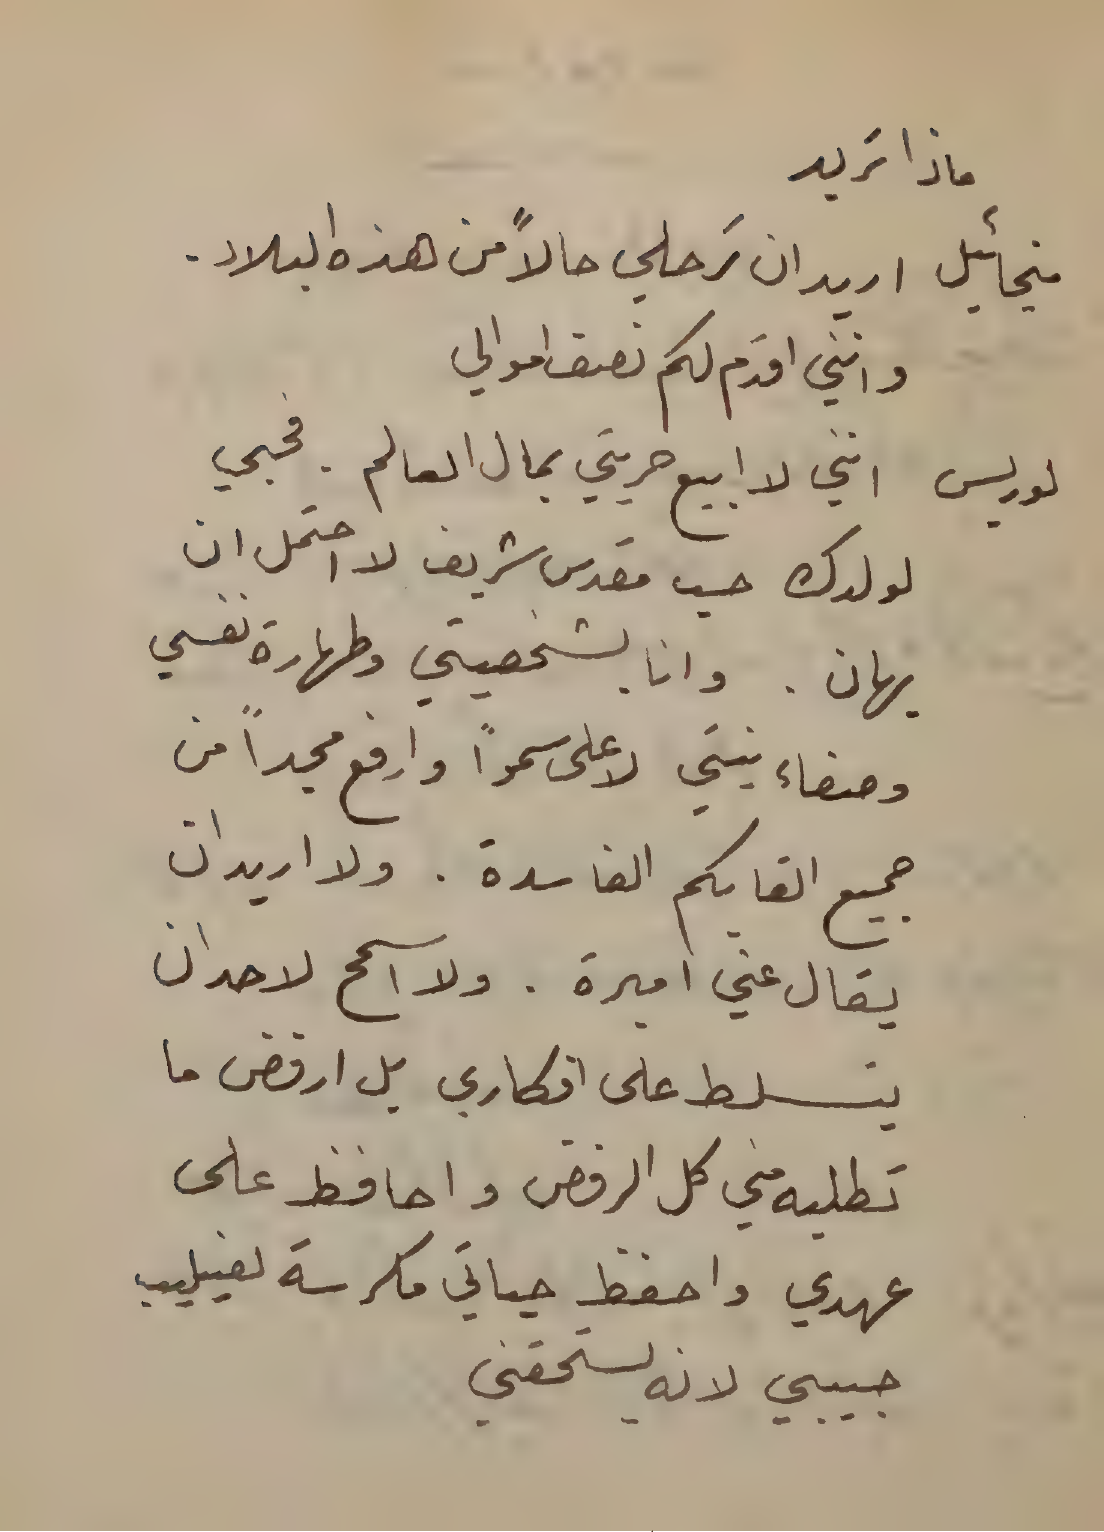 ماذا تريد
ميخائيل اريد ان ترحلي حالاً من هذه البلاد.
وانني اقدم لكم نصف اموالي
لوريس انني لا ابيع حريتي بمال العالم. فحبي
لولدك حب مقدس شريف لا احتمل ان
يهان. وانا بشخصيتي وطهارة نفسي
وصفاء نيتي لاعلى سمواً وارفع مجداً من
جميع القابكم الفاسدة. ولا اريد ان
يقال عني اميرة. ولا اسمح لاحد ان
يتسلط على افكاري بل ارفض ما
تطلبه مني كل الرفض واحافظ على
عهدي واحفظ حياتي مكرسة لفيليب
حبيبي لانه يستحقني